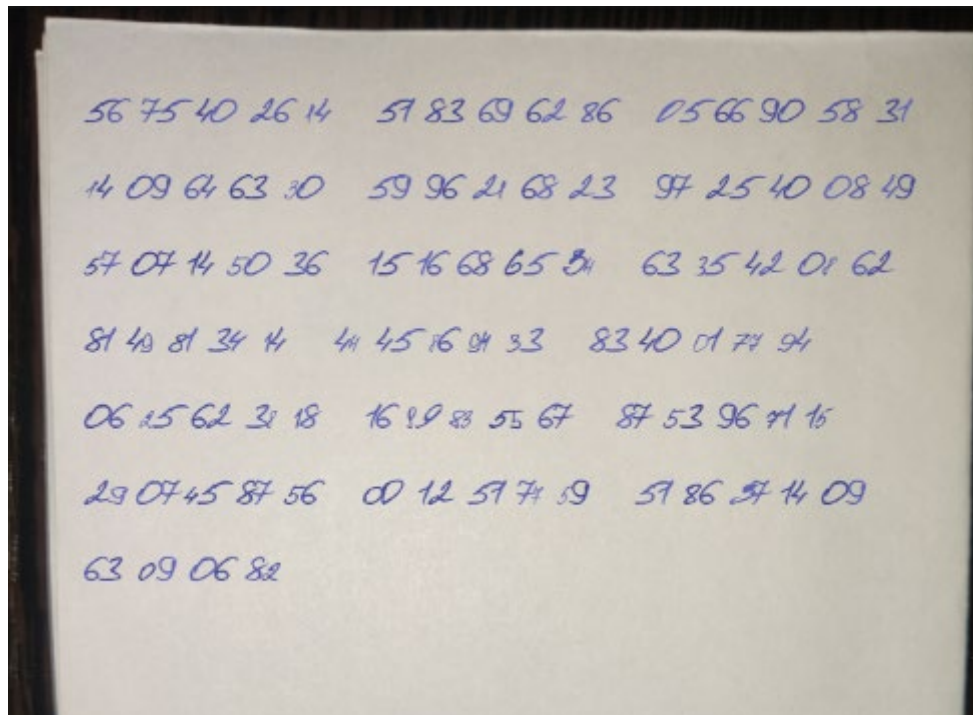 56 75 40 26 14 51 83 69 62 86 05 66 90 58 31
14 09 64 63 30 59 96 21 68 23 97 25 40 08 49
57 07 14 50 36 15 16 68 65 63 35 42 62
81 49 81 34 14 44 45 16 91 33 83 40 01 77 94
06 25 62 18 16 89 83 55 67 87 53 96 71 15
29 07 45 87 56 00 12 51 59 51 86 37 14 09
63 09 06 82